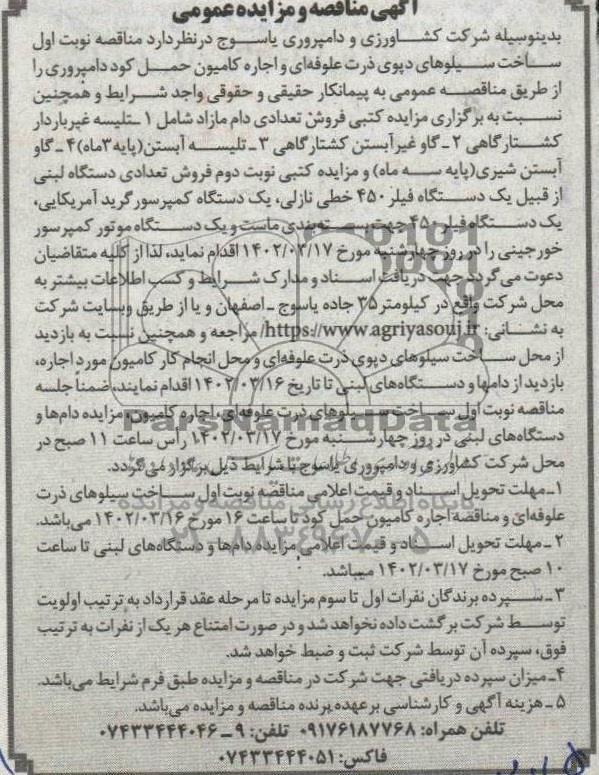 آگهی مناقصه و مزایده عمومی
بدینوسیله شرکت کشاورزی و دامپروری یاسوج در نظر دارد مناقصه نوبت اول
ساخت سیلوهای دپوی ذرت علوفه‌ای و اجاره کامیون حمل کود دامپروری را
از طریق مناقصه عمومی به پیمانکار حقیقی و حقوقی واجد شرایط و همچنین
نسبت به برگزاری مزایده کتبی فروش تعدادی دام مازاد شامل ۱ـ تلیسه غیرباردار
کشتارگاهی ۲ـ گاو غیرآبستن کشتارگاهی ۳ـ تلیسه آبستن (پایه ۳ماه) ۴ـ گاو
آبستن شیری (پایه سه ماه) و مزایده کتبی نوبت دوم فروش تعدادی دستگاه لبنی
از قبیل یک دستگاه فیلر ۴۵۰ خطی نازلی، یک دستگاه کمپرسور گرید آمریکایی،
یک دستگاه فیلر ۴۵۰ جهت بسته‌بندی ماست و یک دستگاه موتور کمپرسور
خورجینی را در روز چهارشنبه مورخ ۱۴۰۲/۰۳/۱۷ اقدام نماید، لذا از کلیه متقاضیان
دعوت می‌گردد جهت دریافت اسناد و مدارک شرایط و کسب اطلاعات بیشتر به
محل شرکت واقع در کیلومتر ۳۵ جاده یاسوج ـ اصفهان و یا از طریق وبسایت شرکت
به نشانی: https://www.agriyasouj.ir/ مراجعه و همچنین نسبت به بازدید
از محل ساخت سیلوهای دپوی ذرت علوفه‌ای و محل انجام کار کامیون مورد اجاره،
بازدید از دامها و دستگاه‌های لبنی تا تاریخ ۱۴۰۲/۰۳/۱۶ اقدام نمایند، ضمناً جلسه
مناقصه نوبت اول ساخت سیلوهای ذرت علوفه‌ای، اجاره کامیون، مزایده دام‌ها و
دستگاه‌های لبنی در روز چهارشنبه مورخ ۱۴۰۲/۰۳/۱۷ رأس ساعت ۱۱ صبح در
محل شرکت کشاورزی و دامپروری یاسوج با شرایط ذیل برگزار می‌گردد.
۱ـ مهلت تحویل اسناد و قیمت اعلامی مناقصه نوبت اول ساخت سیلوهای ذرت
علوفه‌ای و مناقصه اجاره کامیون حمل کود تا ساعت ۱۶ مورخ ۱۴۰۲/۰۳/۱۶ می‌باشد.
۲ـ مهلت تحویل اسناد و قیمت اعلامی مزایده دام‌ها و دستگاه‌های لبنی تا ساعت
۱۰ صبح مورخ ۱۴۰۲/۰۳/۱۷ میباشد.
۳ـ سپرده برندگان نفرات اول تا سوم مزایده تا مرحله عقد قرارداد به ترتیب اولویت
توسط شرکت برگشت داده نخواهد شد و در صورت امتناع هر یک از نفرات به ترتیب
فوق، سپرده آن توسط شرکت ثبت و ضبط خواهد شد.
۴ـ میزان سپرده دریافتی جهت شرکت در مناقصه و مزایده طبق فرم شرایط می‌باشد.
۵ـ هزینه آگهی و کارشناسی بر عهده برنده مناقصه و مزایده می‌باشد.
تلفن همراه: ۰۹۱۷۶۱۸۷۷۶۸ تلفن: ۹ـ۰۷۴۳۳۴۴۴۰۴۶
فاکس: ۰۷۴۳۳۴۴۴۰۵۱
ParsNamadData
پایگاه اطلاع رسانی مناقصه و مزایده